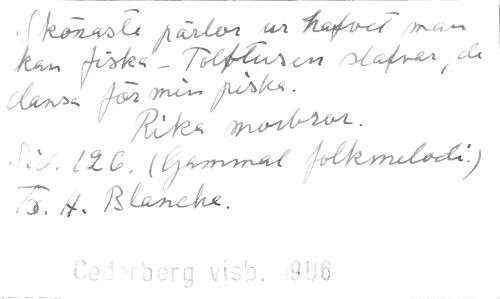 Skönaste pärlor ur hafvet man
kan fiska - Tolftusen slafvar, de
dansa för min piska.
Rika morbror.
Sid. 126. (Gammal folkmelodi.)
Th. A. Blanche.
Cederberg visb. 1906